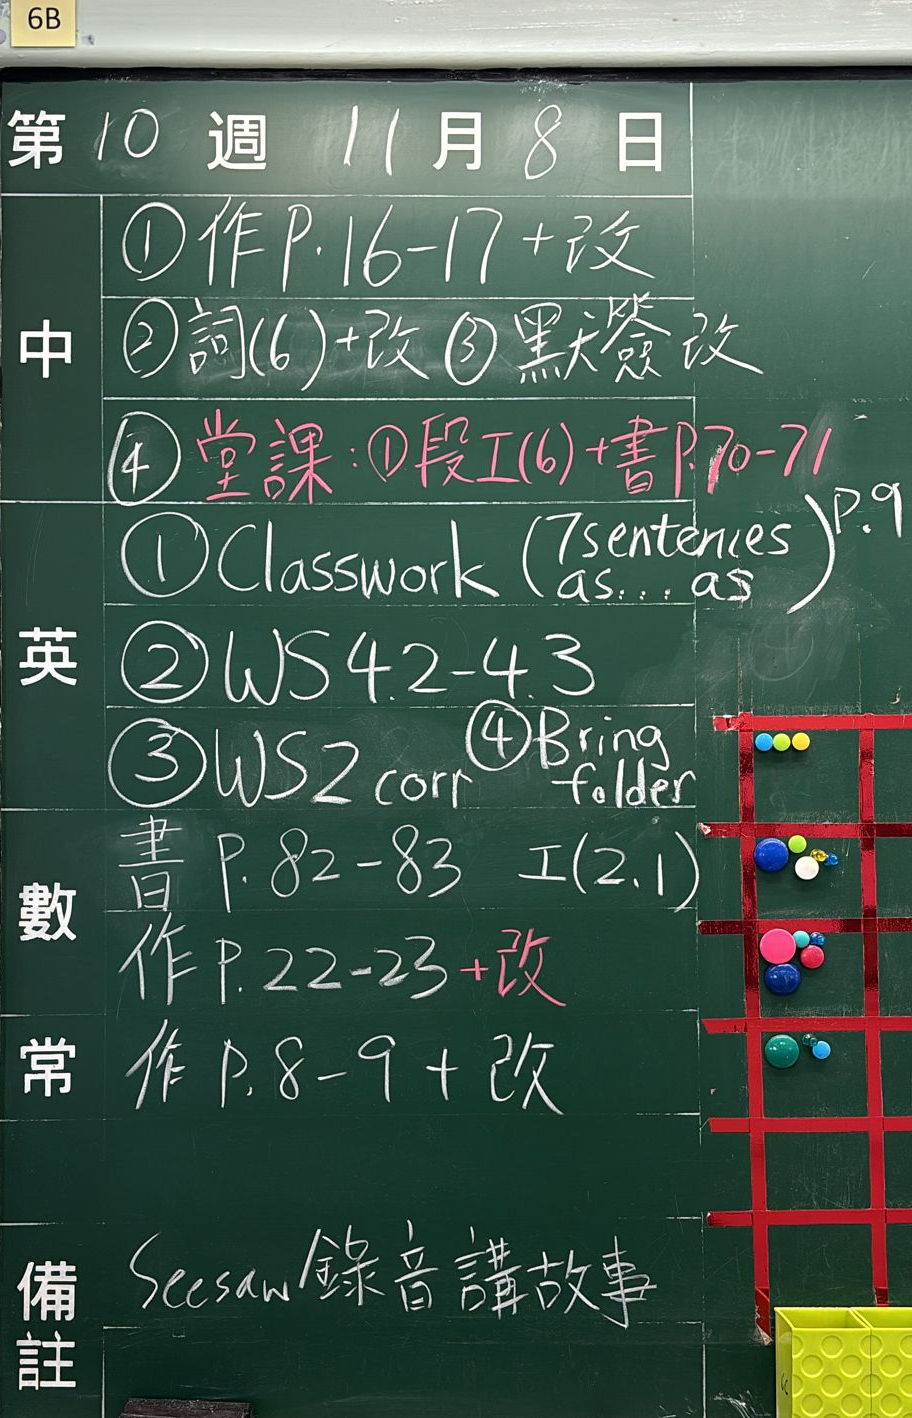 6B
第 10 週 11 月 8 日
中
①作 P.16-17+改
②詞(6)+改 ③默簽改
④堂課:①段工(6)+書P.70-71
英
①Classwork (7sentences as... as) P.9
②WS 4.2-4.3
③WS2 corr ④Bring folder
數
書 P.82-83 工(2.1)
作 P.22-23+改
常
作 P.8-9+改
備註
Seesaw錄音講故事